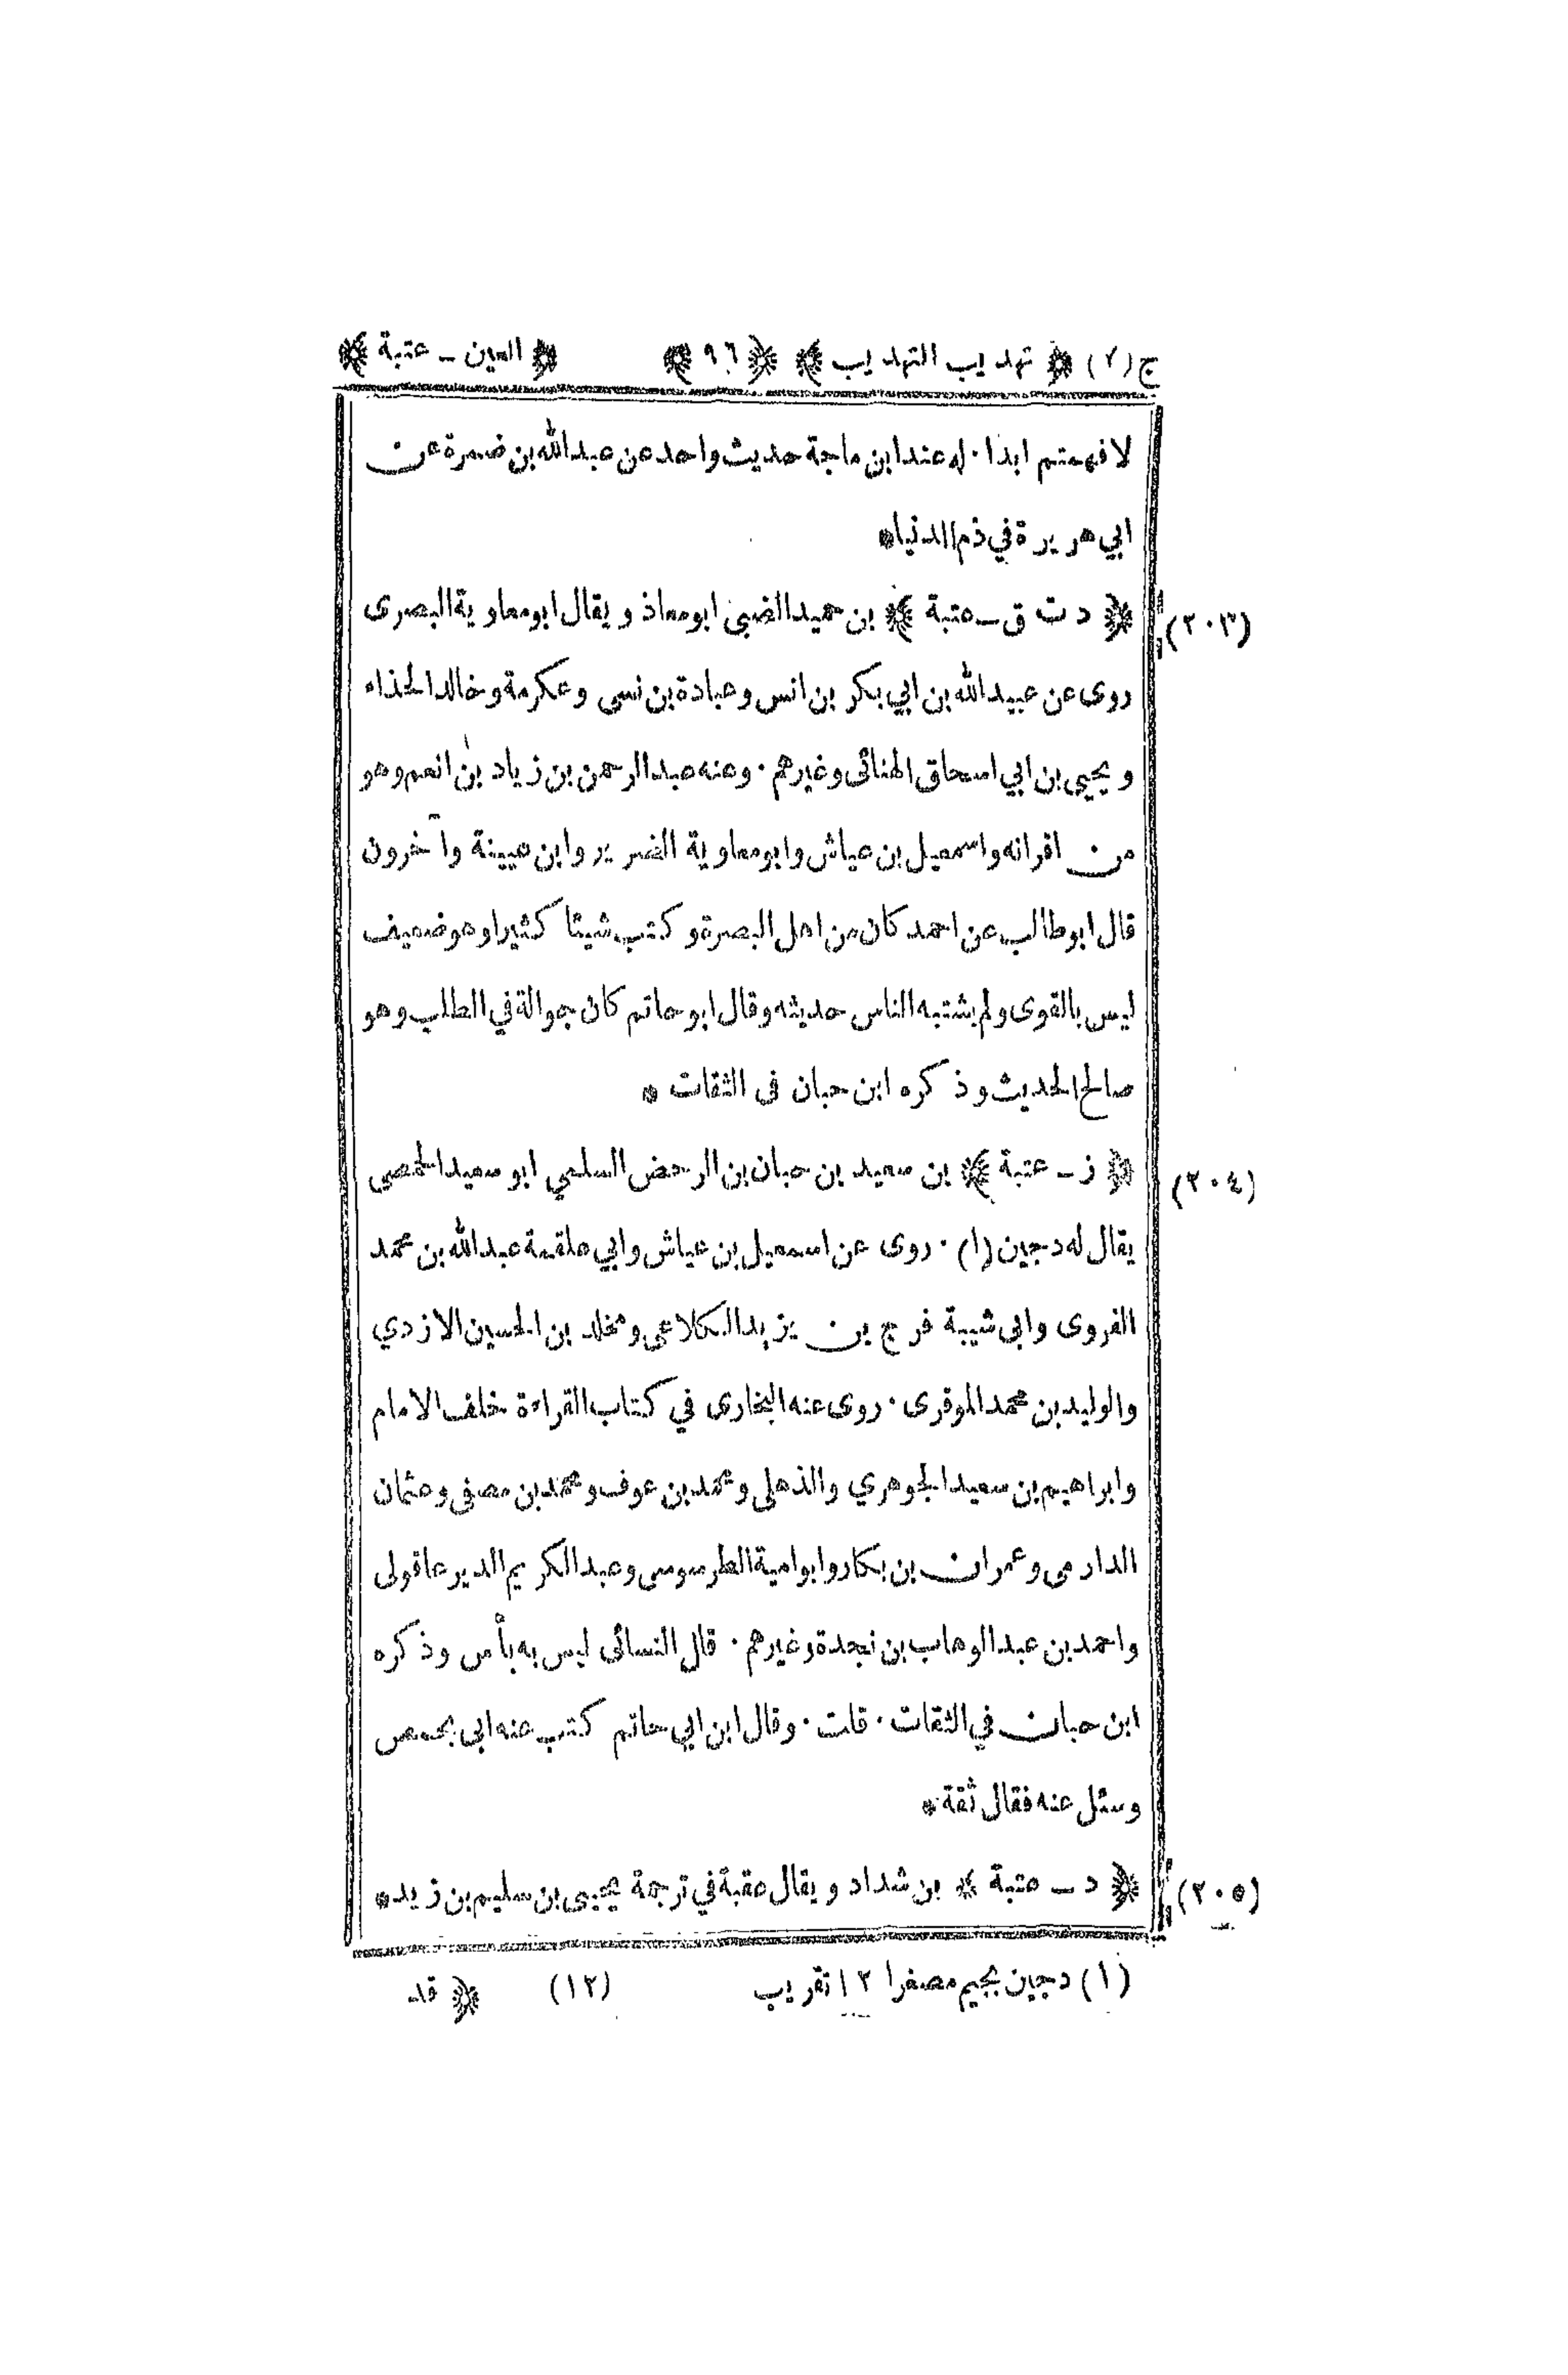 ج (٧) ﴿ تهذيب التهذيب ﴾ ﴿ ٩٦ ﴾ ﴿ العين ـ عتبة ﴾
لا فهمتم ابدا · له عند ابن ماجة حديث واحد عن عبد الله بن ضمرة عن
ابي هريرة في ذم الدنيا *
(٢٠٣) ﴿ د ت ق ـ عتبة ﴾ بن حميد الضبي ابو معاذ ويقال ابو معاوية البصرى
روى عن عبيد الله بن ابي بكر بن انس وعبادة بن نسى وعكرمة وخالد الحذاء
ويحيى بن ابي اسحاق الهنائى وغيرهم · وعنه عبد الرحمن بن زياد بن انعم وهو
من اقرانه واسمعيل بن عياش وابو معاوية الضرير وابن عيينة وآخرون
قال ابو طالب عن احمد كان من اهل البصرة وكتب شيئا كثيرا وهو ضعيف
ليس بالقوى ولم يشتبه الناس حديثه وقال ابو حاتم كان جوالة في الطلب وهو
صالح الحديث وذكره ابن حبان فى الثقات *
(٢٠٤) ﴿ ز ـ عتبة ﴾ بن سعيد بن حبان بن الرحض السلمي ابو سعيد الحمصى
يقال له دجين (١) · روى عن اسمعيل بن عياش وابي علقمة عبد الله بن محمد
الفروى وابى شيبة فرج بن يزيد الكلاعى ومخلد بن الحسين الازدي
والوليد بن محمد الموقرى · روى عنه البخارى في كتاب القراءة خلف الامام
وابراهيم بن سعيد الجوهري والذهلى ومحمد بن عوف ومحمد بن مصفى وعثمان
الدارمى وعمران بن بكار وابو امية الطرسوسى وعبد الكريم الديرعاقولى
واحمد بن عبد الوهاب بن نجدة وغيرهم · قال النسائى ليس به بأس وذكره
ابن حبان في الثقات · قلت · وقال ابن ابي حاتم كتب عنه ابى بحمص
وسئل عنه فقال ثقة *
(٢٠٥) ﴿ د ـ عتبة ﴾ بن شداد ويقال عقبة في ترجمة يحيى بن سليم بن زيد *
(١) دجين بجيم مصغرا ١٢ تقريب (١٢) ﴿ قد